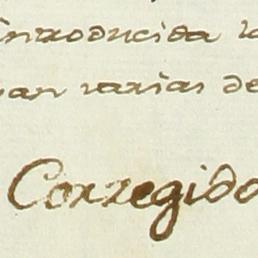 introducida la
van varias de
Corregido